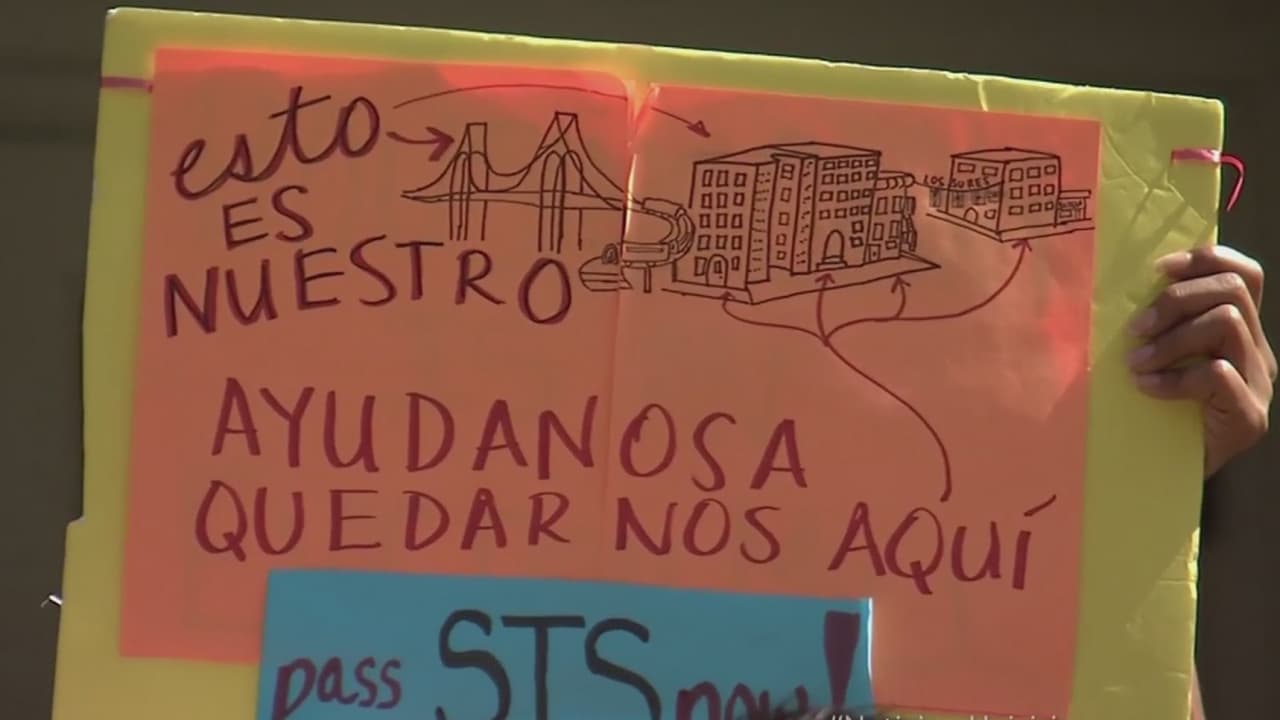 esto
ES
NUESTRO
LOS SURES
AYUDANOS A
QUEDAR NOS AQUÍ
pass STS now!